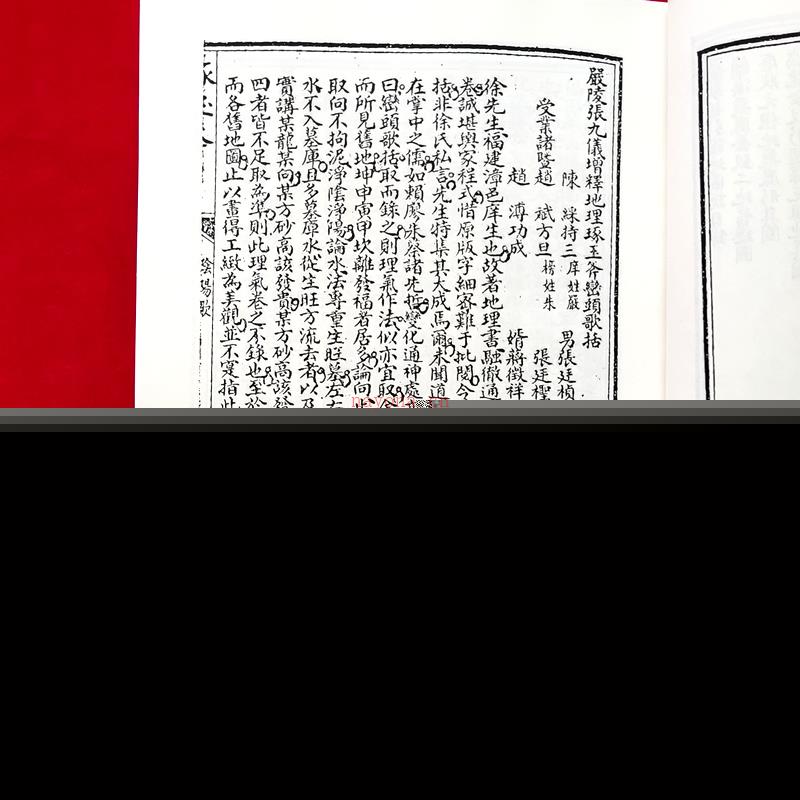 嚴陵張九儀增釋地理琢玉斧巒頭歌括
陳 綵持三 庠姓嚴 男張廷楨
受業諸暨趙 斌方旦 榜姓朱 張廷櫻
趙 溥功成 婿蔣徵祥
徐先生福建漳邑庠生也故著地理書融徹通
卷誠堪輿家程式惜原版字細密難于批閱今
括非徐氏私言先生特集其大成馬爾未聞道
在掌中之儒如賴廖朱蔡諸先哲變化通神處
曰巒頭歌括取而錄之則理氣作法似亦宜取
而所見舊地坤申寅甲坎離發福者居多論向
取向不拘泥淨陰淨陽論水法專重生旺墓左右
水不入墓庫且多墓庫水從生旺方流去者以及
實講某龍某向某方砂高該發貴某方砂高該發
四者皆不足取為準則此理氣卷之不錄也至於
而各舊地圖止以畫得工緻為美觀並不寔指此
陰陽歌